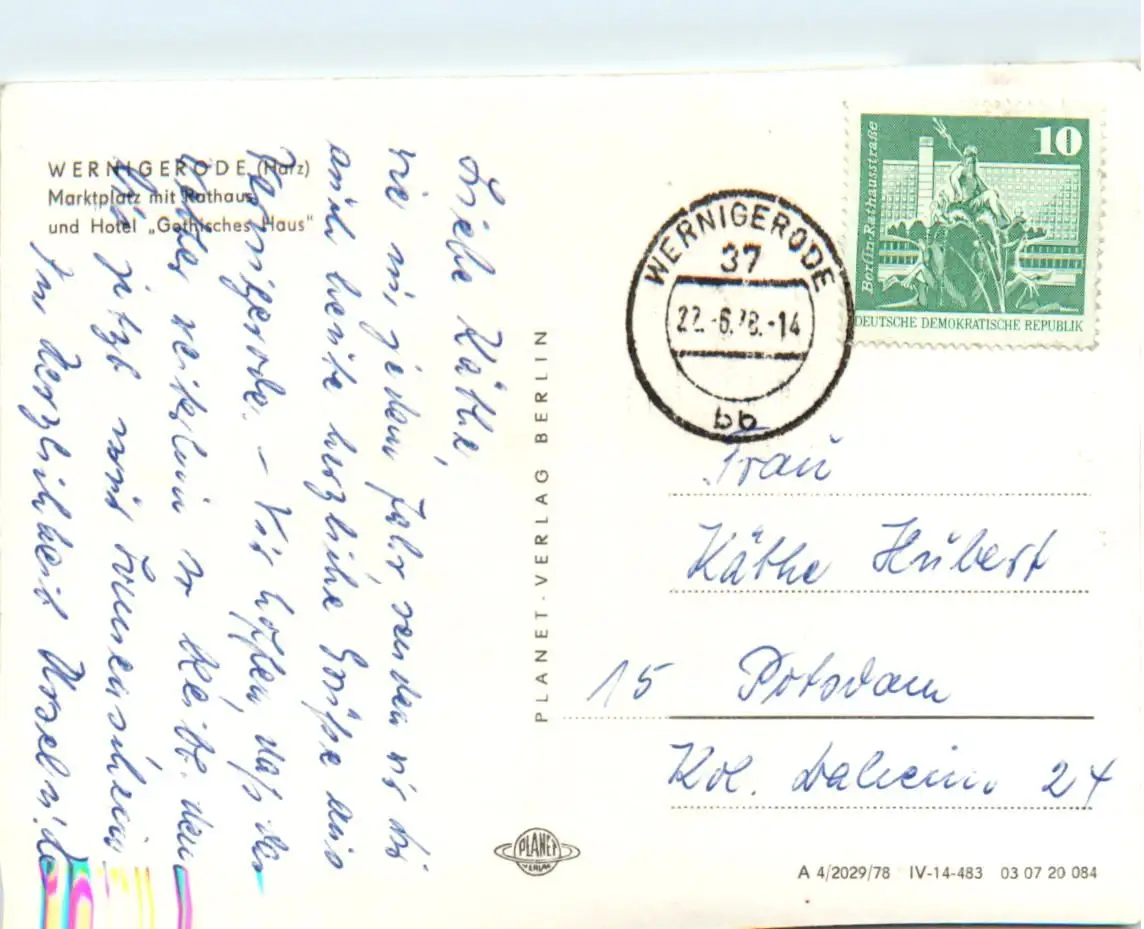 WERNIGERODE (Harz)
Marktplatz mit Rathaus
und Hotel „Gothisches Haus"
Liebe Käthe,
wie in jedem Jahr senden wir Dir
auch heute herzliche Grüße aus
Wernigerode. – Wir hoffen, daß das
Wetter weiterhin so bleibt. denn
bis jetzt nur Sonnenschein.
In Herzlichkeit
PLANET-VERLAG BERLIN
PLANET
VERLAG
WERNIGERODE
37
22.-6.78.-14
bb
Berlin-Rathausstraße
10
DEUTSCHE DEMOKRATISCHE REPUBLIK
Frau
Käthe Hubert
15 Potsdam
Kol. Daheim 24
A 4/2029/78 IV-14-483 03 07 20 084